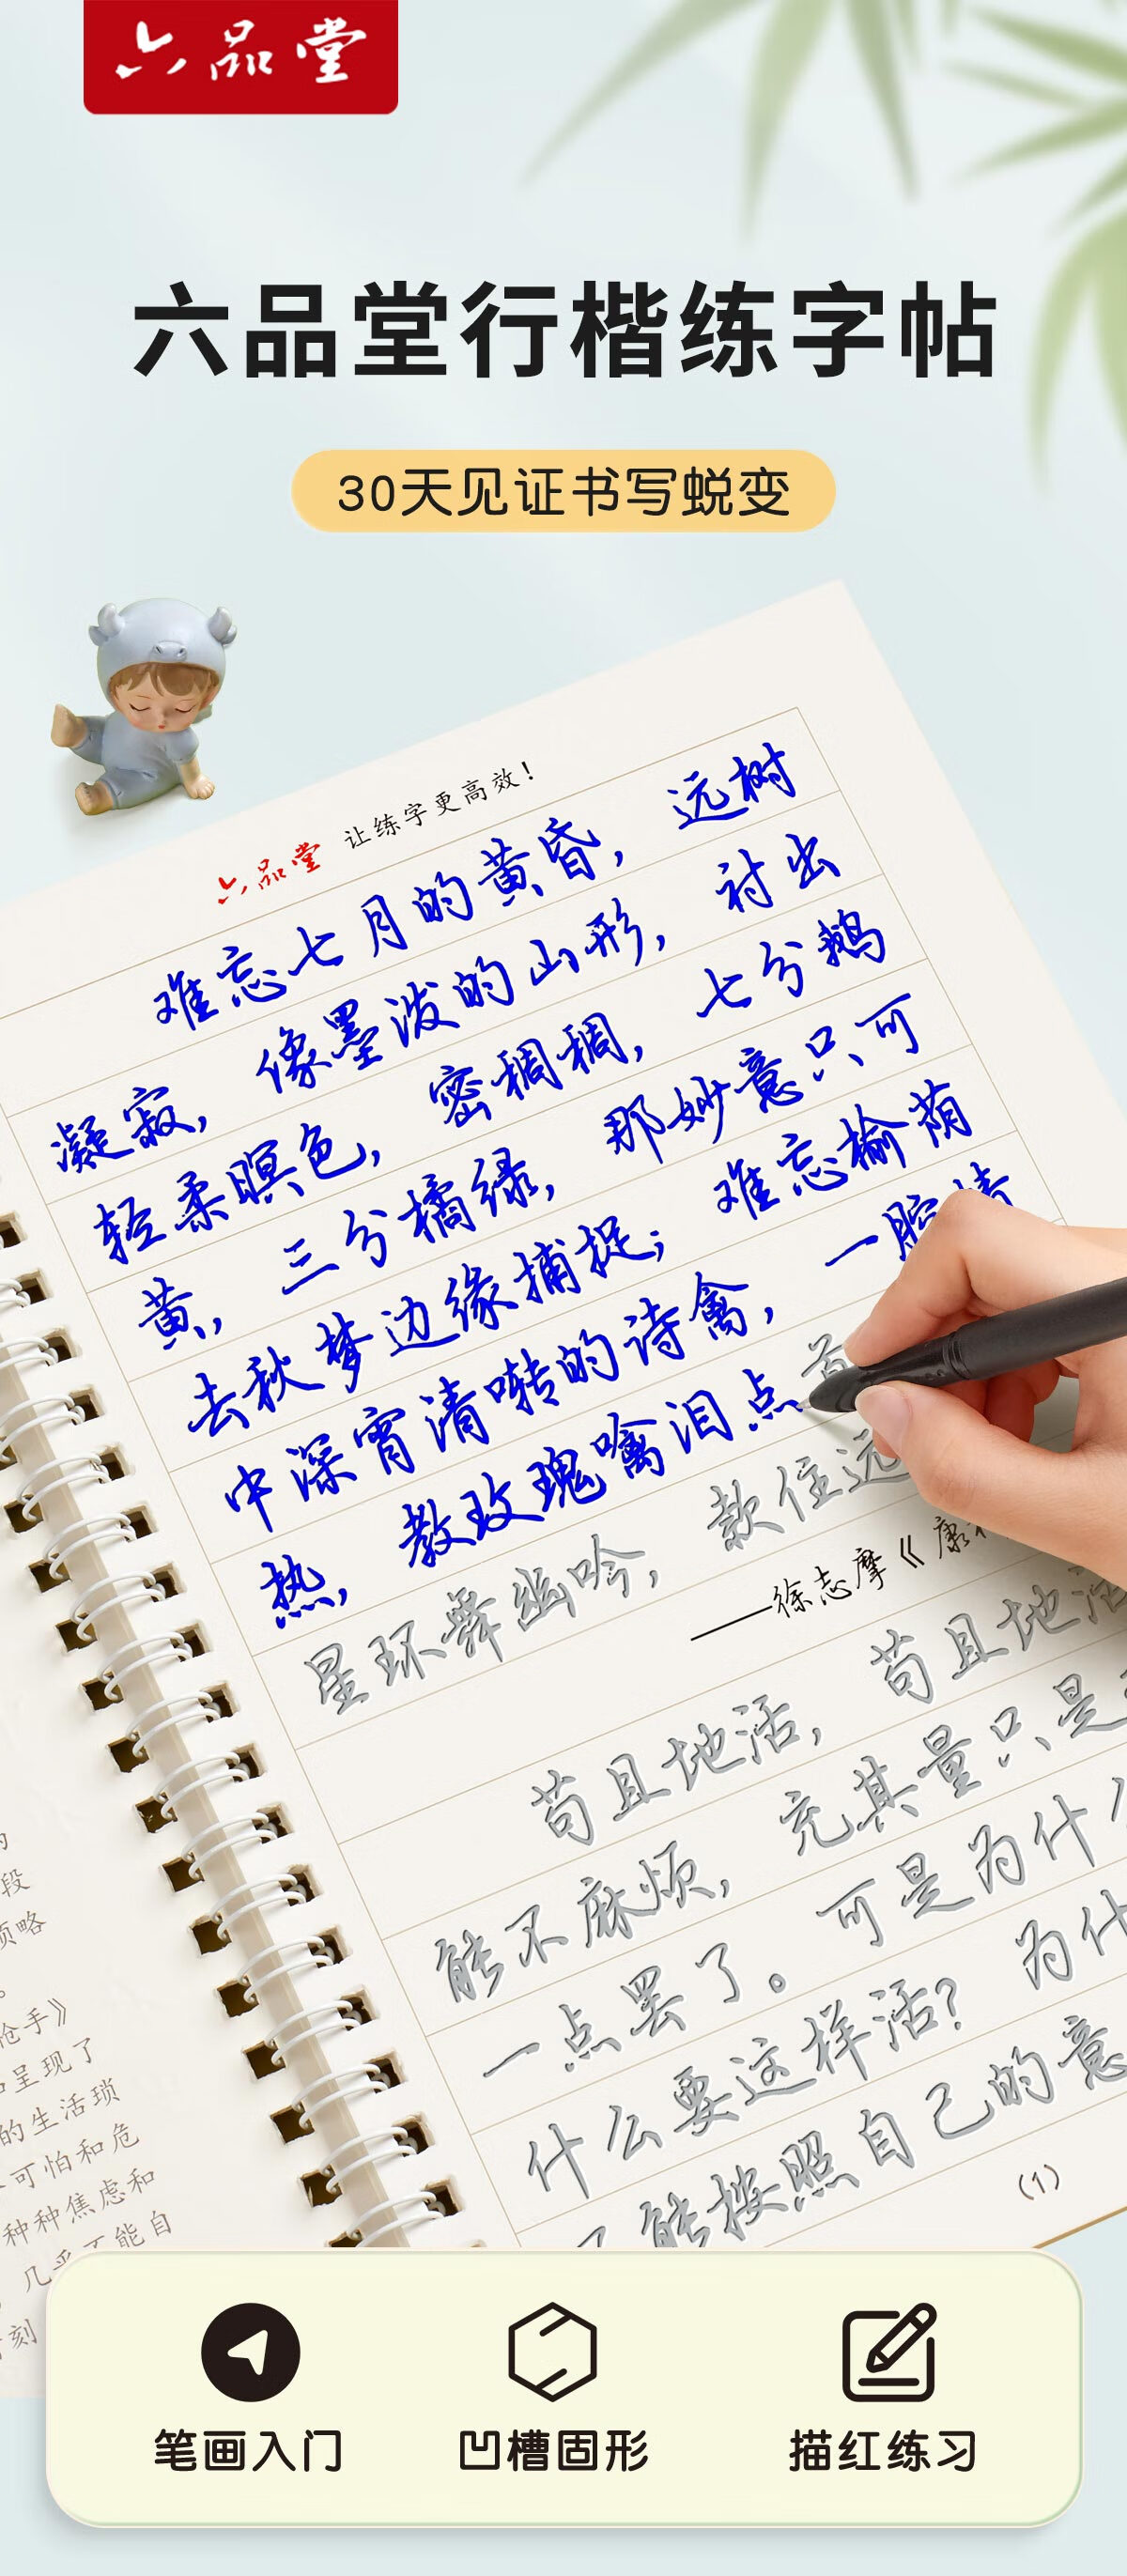 六品堂
六品堂行楷练字帖
30天见证书写蜕变
六品堂 让练字更高效!
难忘七月的黄昏,远树
凝寂,像墨泼的山形,衬出
轻柔暝色,密稠稠,七分鹅
黄,三分橘绿,那妙意只可
去秋梦边缘捕捉;难忘榆荫
中深宵清啭的诗禽,一腔情
热,教玫瑰噙泪点首
星环舞幽吟,款住远
——徐志摩《康
苟且地活,苟且地活
能不麻烦,充其量只是
一点罢了。可是为什么
什么要这样活?为什
能按照自己的意
(1)
的
段
领略
。
枪手》
呈现了
的生活琐
可怕和危
种种焦虑和
几乎不能自
刻
笔画入门
凹槽固形
描红练习